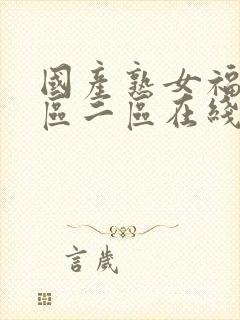 國產熟女福
區二區在綫
言歲